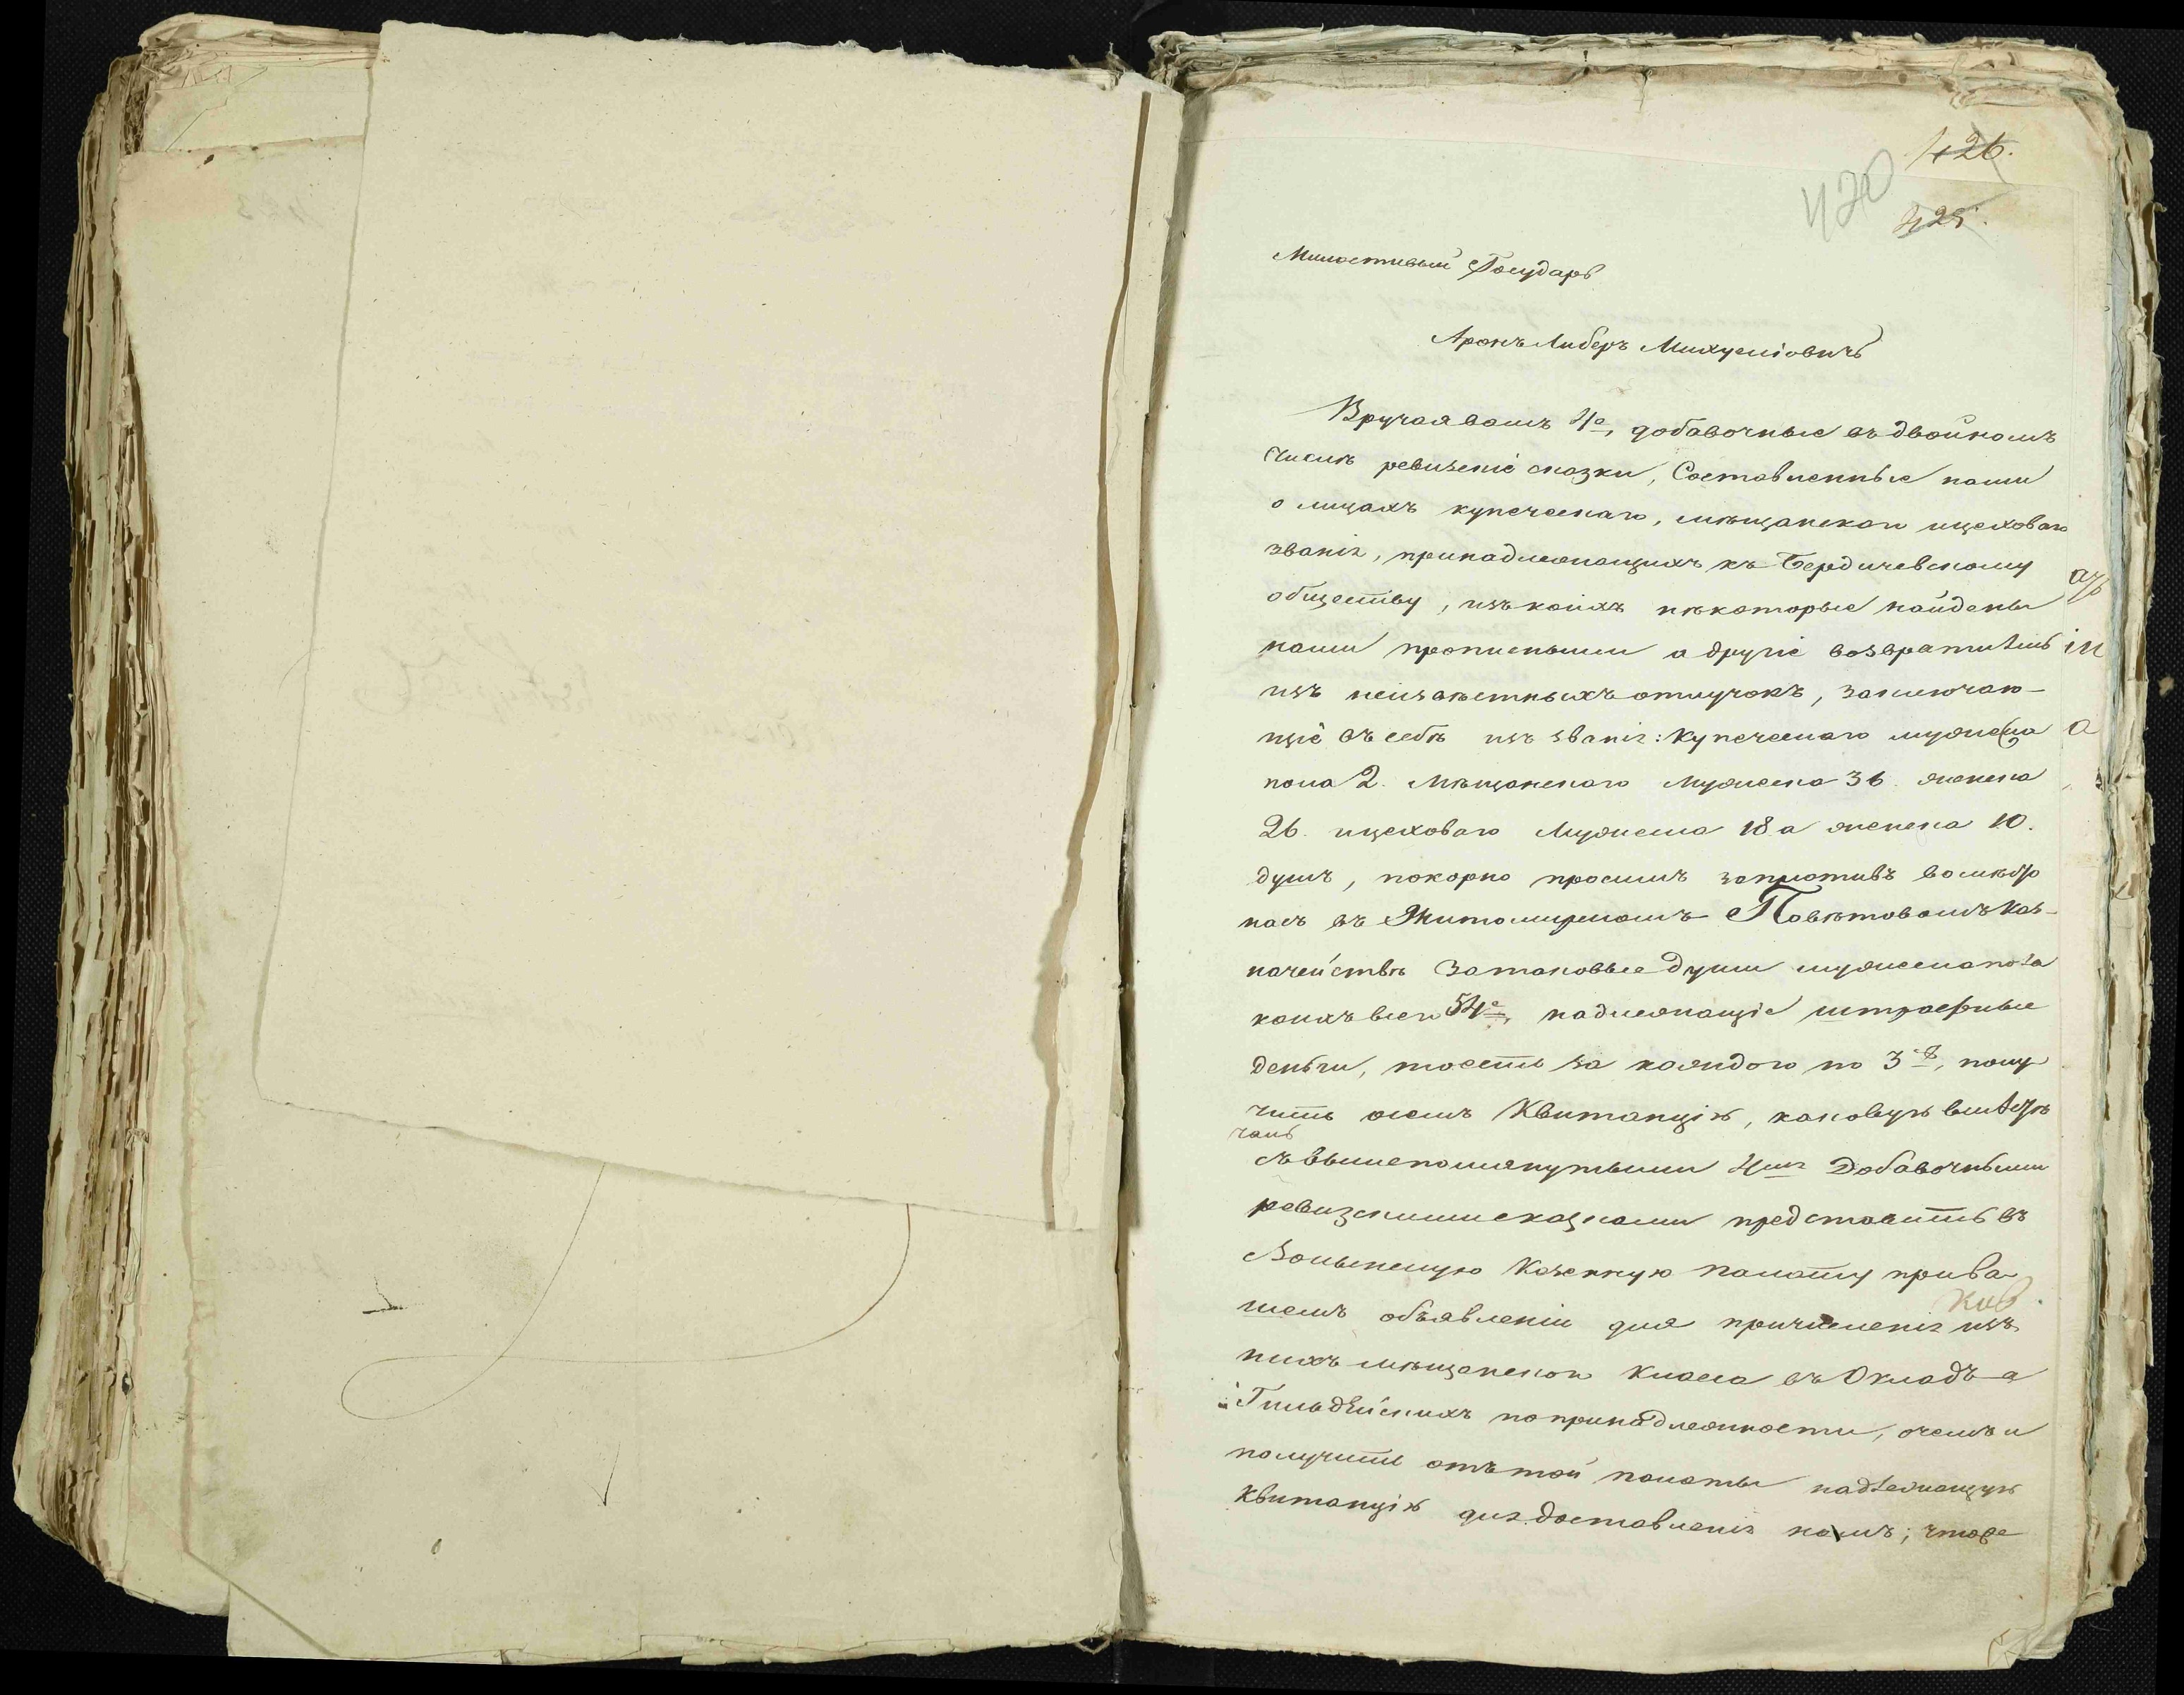 426.
420
425.
Милостивый Государь
Аронъ Либеръ Михуелiовичъ
Вручая вамъ 4е, добавочные въ двойномъ
числѣ ревизскiе сказки, Составленные нами
о лицахъ купеческаго, мѣщанскаго и цеховаго
званiя, принадлежащихъ къ Бердичевскому
обществу, изъ коихъ нѣкоторые найдены
нами прописными а другiе возвратились
изъ неизвѣстныхъ отлучокъ, заключаю-
щiе въ себѣ изъ званiя: Купеческаго мужеска
пола 2. Мѣщанскаго Мужеска 36. женска
26. и цеховаго Мужеска 18. а женска 10.
душъ, покорно просимъ заплотивъ вомѣсто
насъ въ Житомирскомъ Повѣтовомъ Каз-
начействѣ За таковые души мужеска пола
коихъ всего 54е, надлежащiе штрафные
деньги, тоесть за каждого по 3 , полу
чить въ семъ Квитанцiю, каковую вмѣстѣ
съ вышепомянутыми 4мя Добавочными
ревизскими сказками представить въ
Волынскую Казенную палату при ва
шемъ объявленiи для причисленiя изъ
нихъ мѣщанского Класса въ Окладъ а
Гильдѣйскихъ по принадлежности, о чемъ и
получить отъ той палаты надлежащую
Квитанцiю для доставленiя намъ; что же